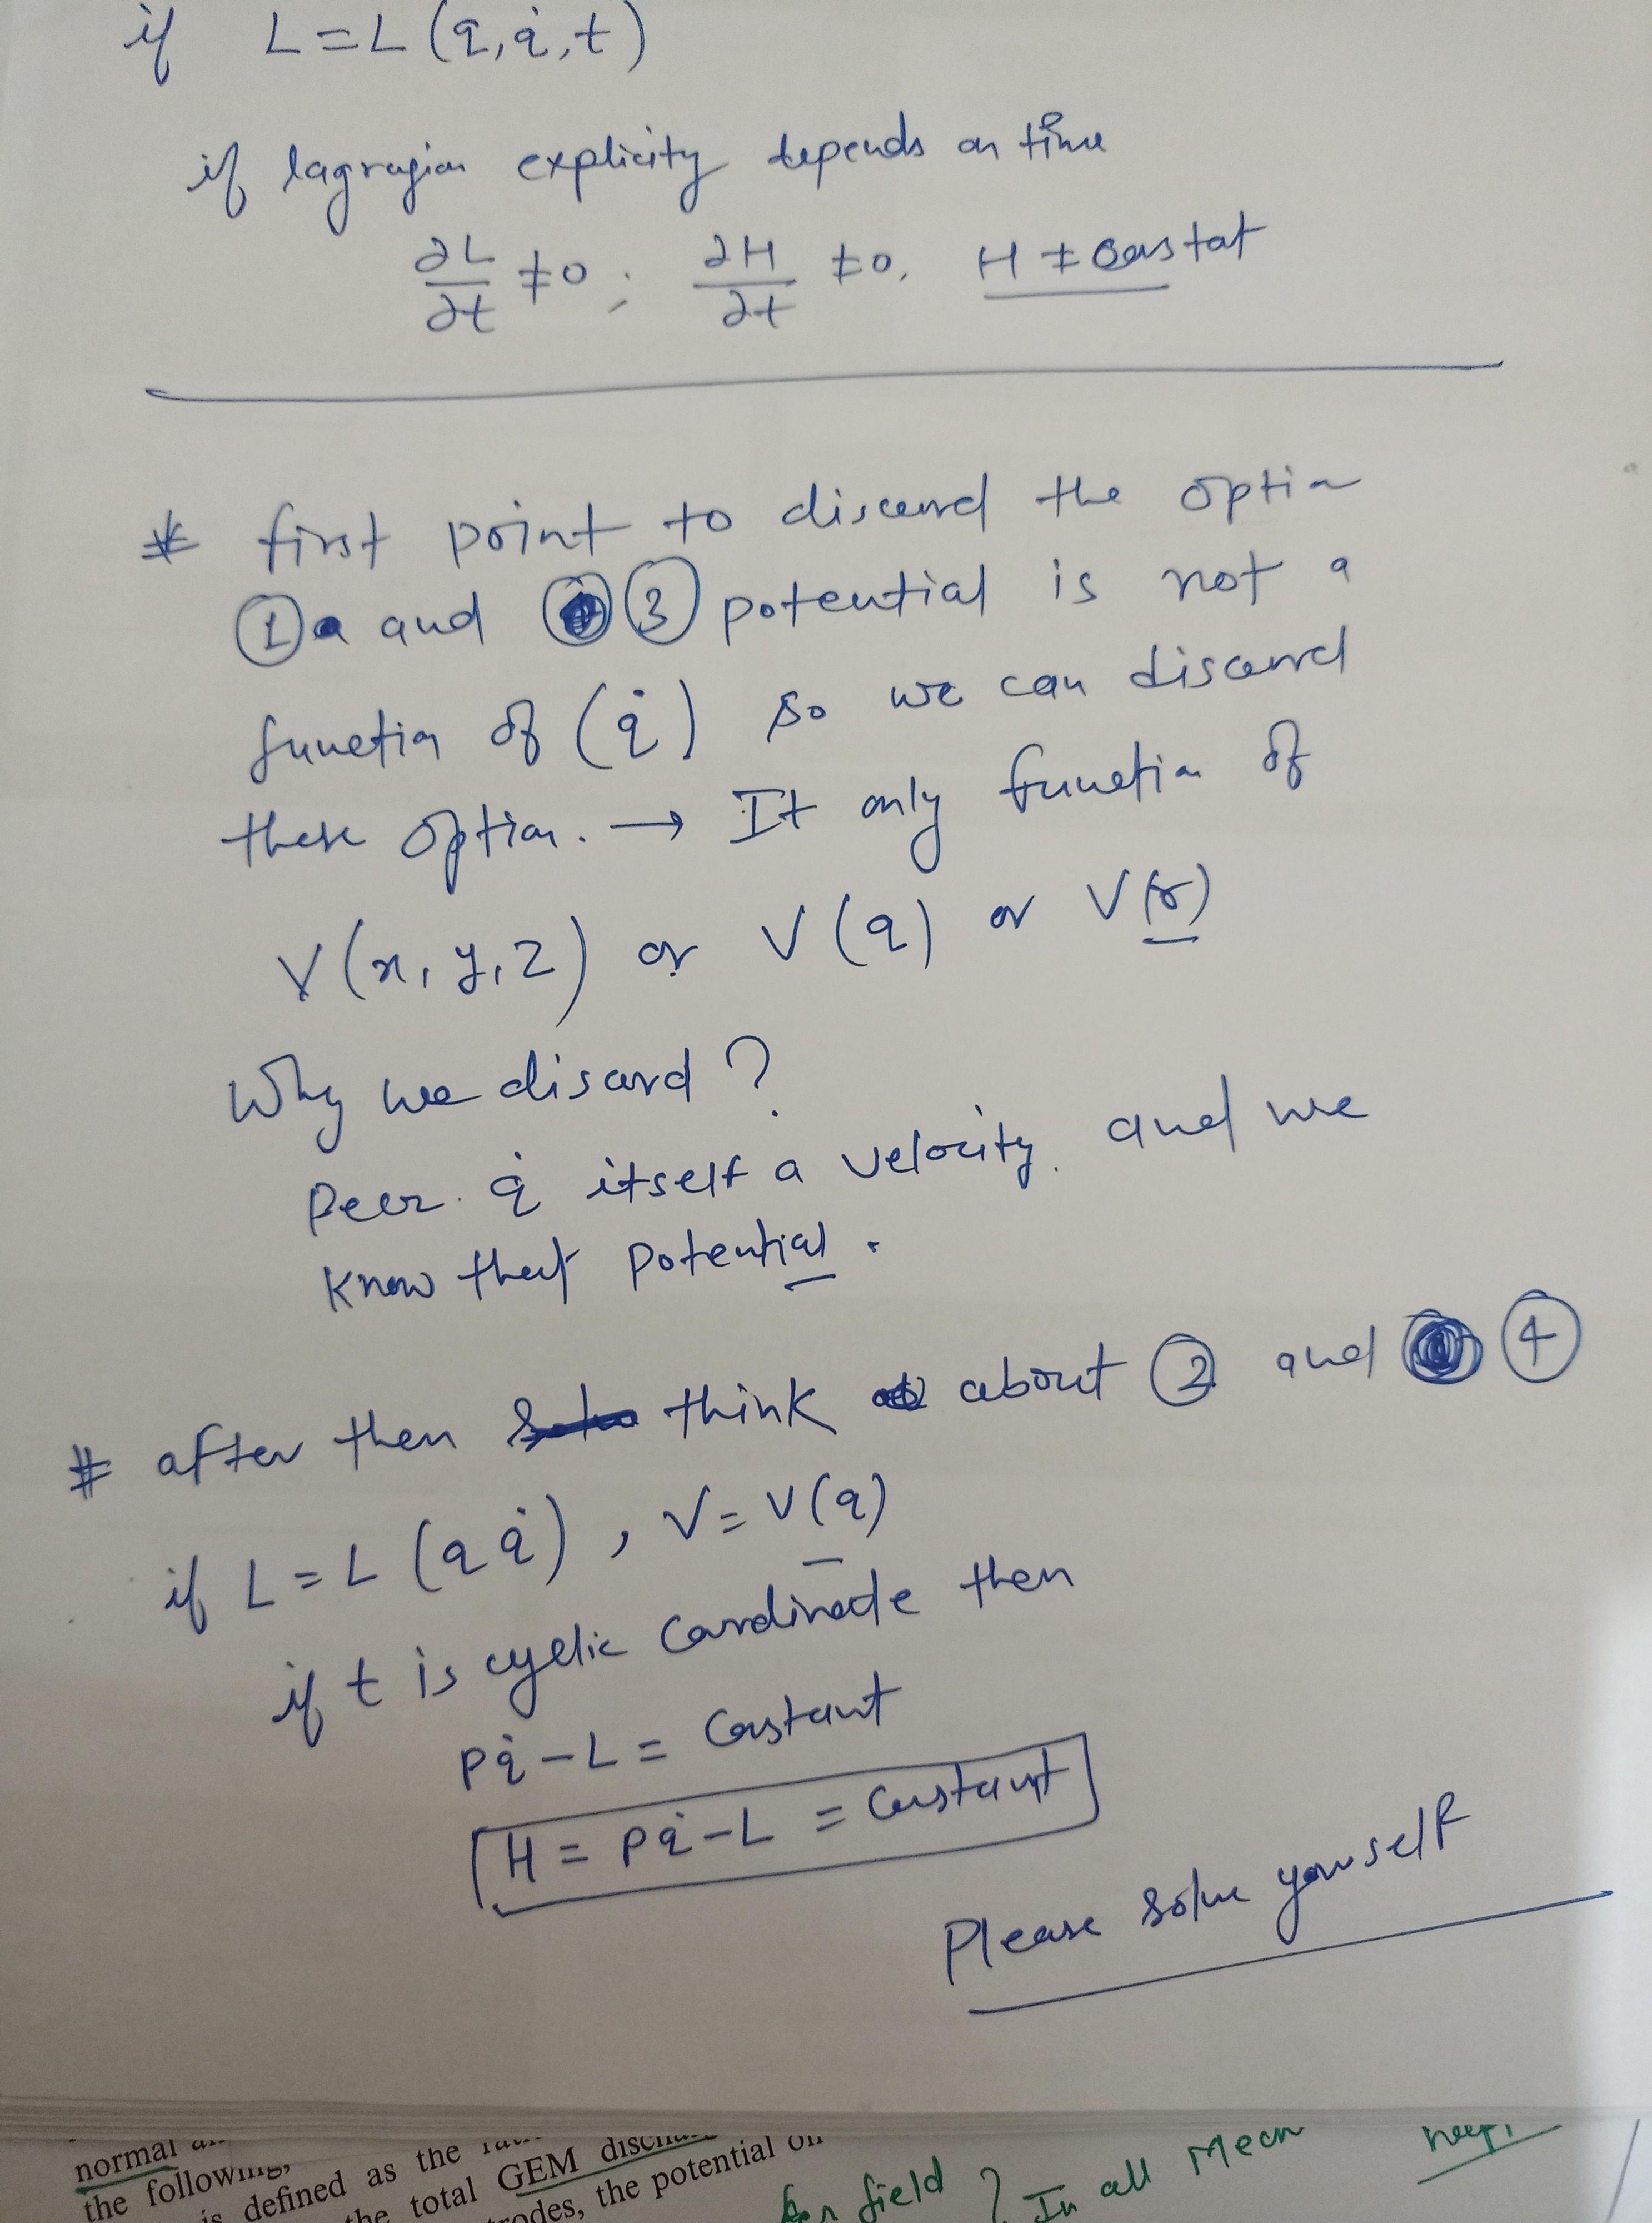 if L = L (q, q̇, t)
if lagragian explicity depends on time
∂L/∂t ≠ 0 ; ∂H/∂t ≠ 0, H ≠ constat
* first point to discard the option
① and ③ potential is not a
function of (q̇) so we can discard
these option. → It only function of
V(x, y, z) or V(q) or V(r)
Why we discard ?
q̇ itself a velocity. and we
know that potential.
# after then think about ② and ④
if L = L (q q̇), V = V(q)
if t is cyclic cordinate then
pq̇ - L = constant
H = pq̇ - L = constant
Please solve yourself
normal
the following,
is defined as the
the total GEM
the potential on
field ? In all Mean